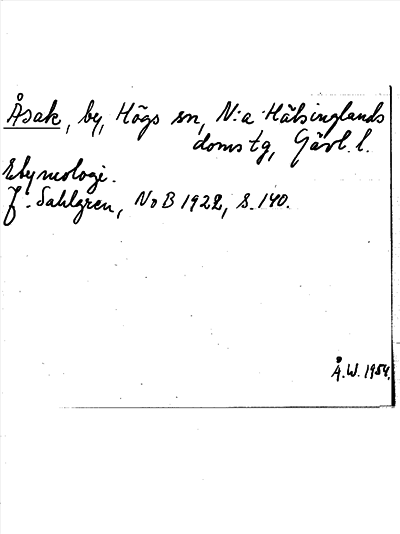 Åsak, by, Högs sn, N:a Hälsinglands
doms tg, Gävl. l.
Etymologi.
J. Sahlgren, NoB 1922, s. 140.
Å.W. 1954.